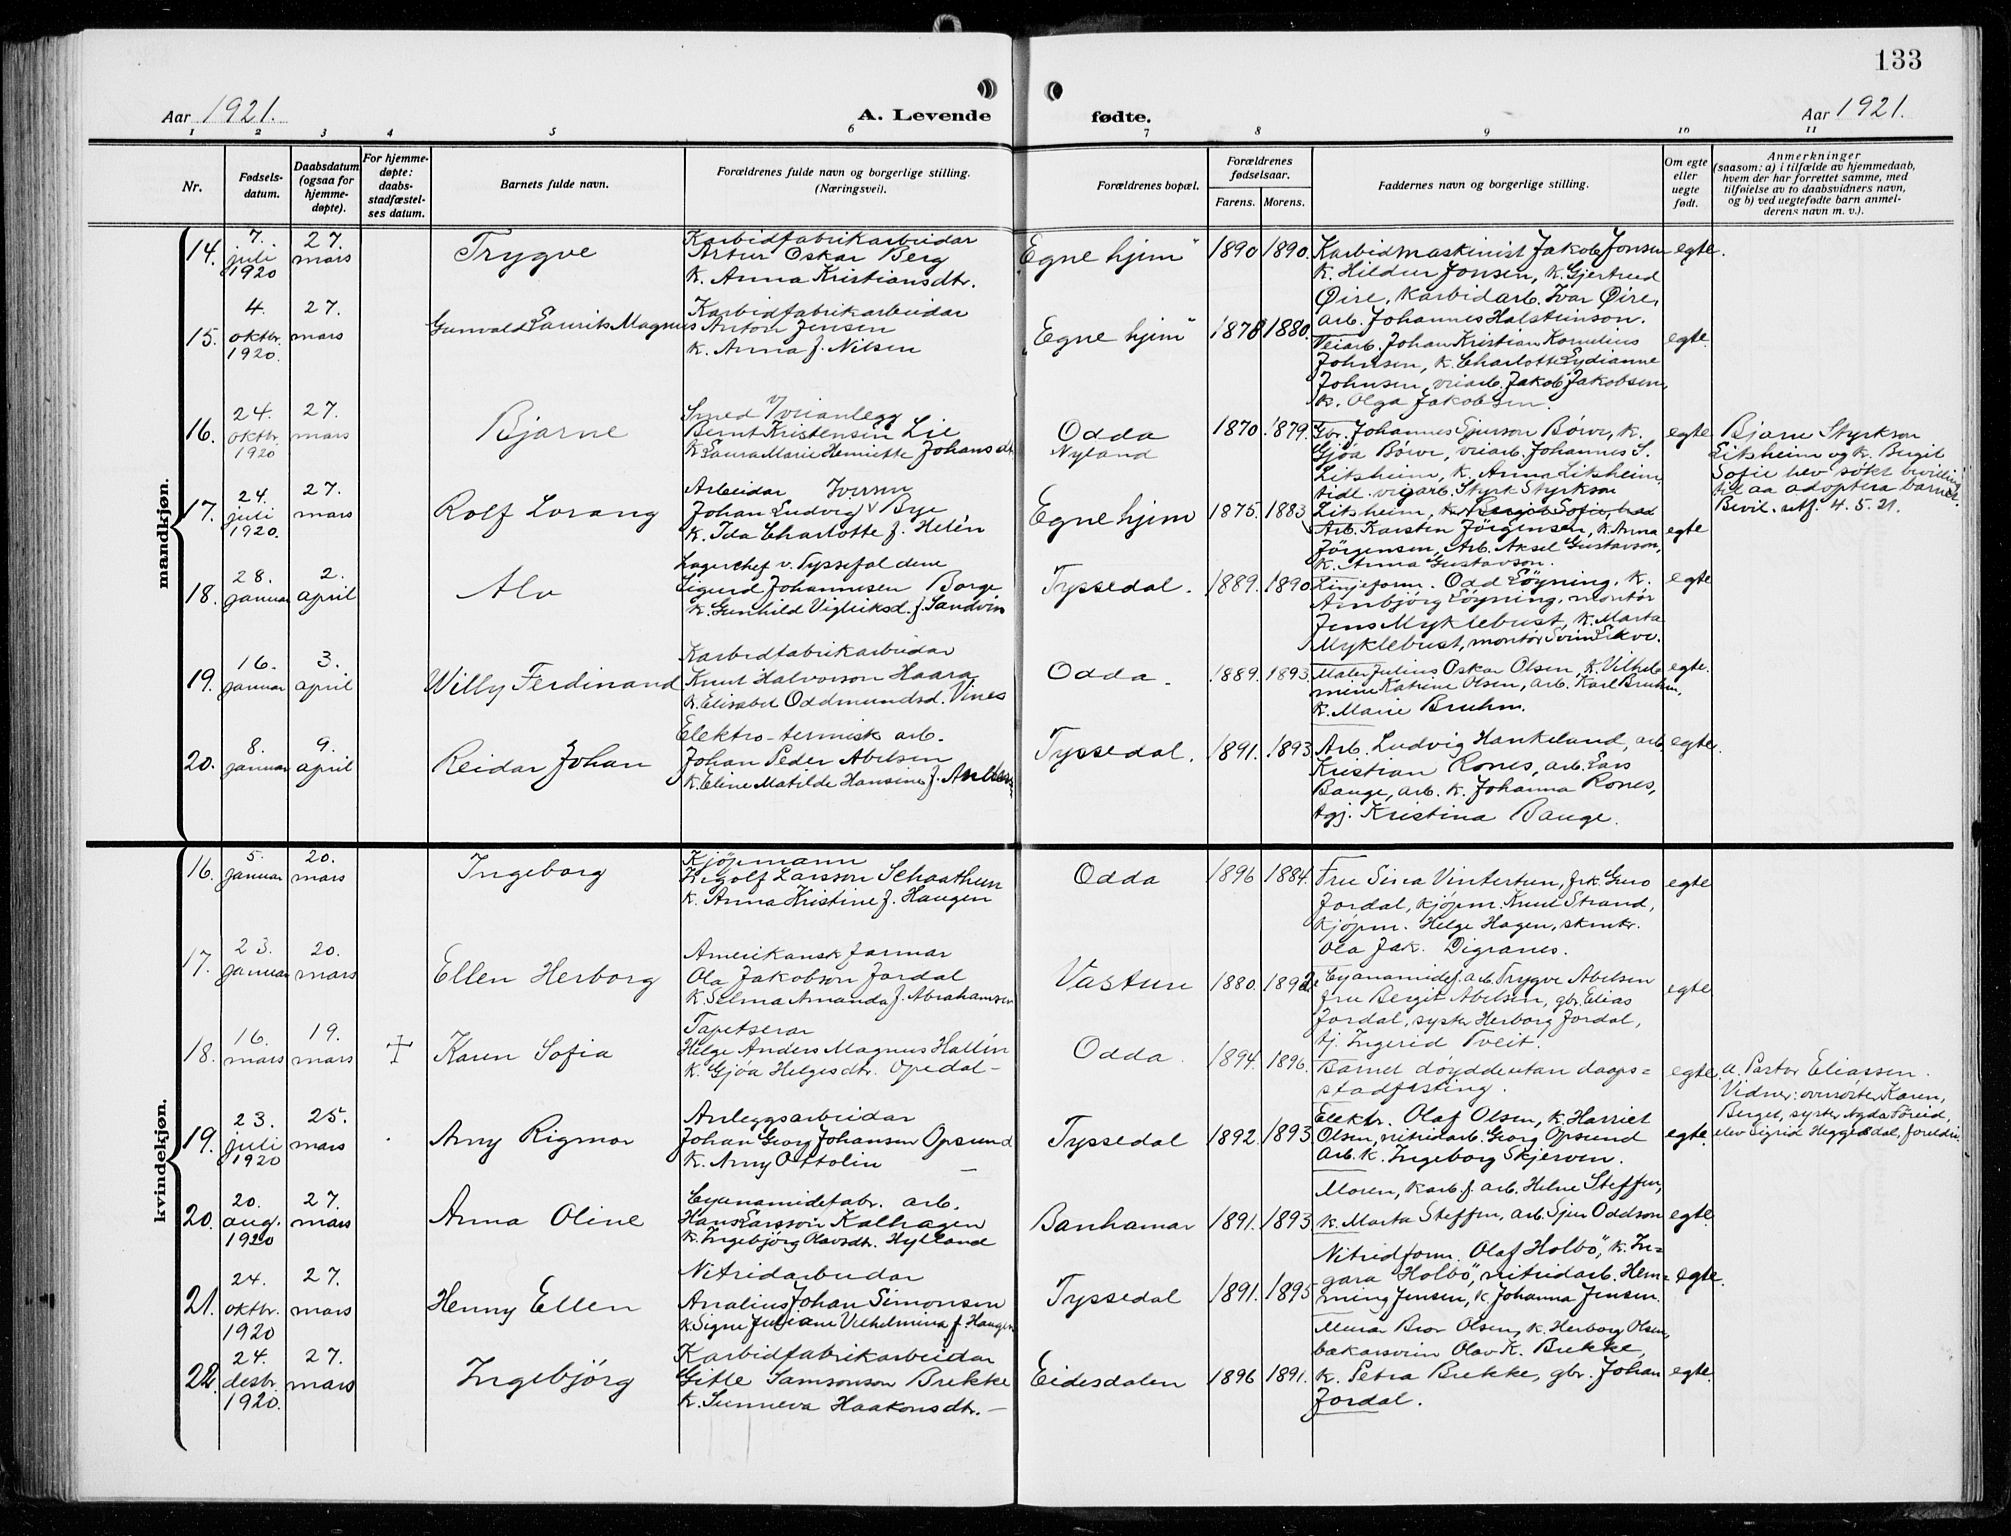 133
Aar 1921.
A. Levende
fødte.
Aar 1921.
1 2 3 4 5 6 7 8 9 10 11
Nr.
Fødsels-
datum.
Daabsdatum
(ogsaa for
hjemme-
døpte).
For hjemme-
døpte:
daabs-
stadfæstel-
ses datum.
Barnets fulde navn.
Forældrenes fulde navn og borgerlige stilling.
(Næringsvei).
Forældrenes bopæl.
Forældrenes
fødselsaar.
Farens. Morens.
Faddernes navn og borgerlige stilling.
Om egte
eller
uegte
født.
Anmerkninger
(saasom: a) i tilfælde av hjemmedaab,
hvem der har forrettet samme, med
tilføielse av to daabsvidners navn,
og b) ved uegtefødte barn anmel-
derens navn m. v.).
mandkjøn.
14.
7.
juli
1920
27.
mars
Trygve
Karbidfabrikarbeidar
Artur Oskar Berg
k. Anna Kristiansdtr.
"Egne hjim"
1890 1890.
Karbidmaskinist Jakob Jonsen
k. Hildur Jonsen, k. Gjertrud
Øire, Karbidarb. Ivar Øire,
arb. Johannes Halsteinson.
egte.
15.
4.
oktbr.
1920.
27.
mars
Gunvald Laurits Magnus
Karbidfabrikarbeidar
Anton Jensen
k. Anna f. Nilsen
"Egne hjim"
1878 1880.
Veiarb. Johan Kristian Kornelius
Johnsen, k. Charlotte Lydianne
Johnsen, veiarb. Jakob Jakobsen,
k. Olga Jakobsen.
egte.
16.
24.
oktbr.
1920
27.
mars
Bjarne
Smed v/veianlegg
Bernt Kristensen Lie
k. Laura Marie Henriette Johansdt.
Odda
Nyland
1870. 1879.
Gbr. Johannes Sjurson Börve, k.
Gjöa Börve, veiarb. Johannes S.
Litsheim, k. Anna Litsheim,
tidl. veiarb. Styrk Styrkson
Litsheim, k. Bergit Sofie, had
egte
Bjarne Styrkson
Litsheim og k. Birgit
Sofie hev søkt bevilling
til aa adoptera barnet.
Bevil. utf. 4.5.21.
17.
24.
juli
1920.
27.
mars
Rolf Lorang
Arbeidar Iversen
Johan Ludvig v Bye
k. Ida Charlotte f. Helén
Egne hjim
1875. 1883
Arb. Karsten Jörgensen, k. Anna
Jörgensen, Arb. Aksel Gustavson,
k. Anna Gustavson.
egte
18.
28.
januar
2.
april
Alv
Lagerchef v. Tyssefaldene
Sigurd Johannesen Borge
k. Gunhild Vigleiksd. f. Sandvin
Tyssedal.
1889. 1890
Linjeform. Odd Löyning, k.
Ambjörg Löyning, montör
Jens Myklebust, k. Marta
Myklebust, montör Svein Ekve.
egte
19.
16.
januar
3.
april
Willy Ferdinand
Karbidfabrikarbeidar
Knut Halvorson Haara
k. Elisabet Oddmundsd. Vines
Odda.
1889. 1893
Maler Julius Oskar Olsen, k. Vilhel-
mine Katrine Olsen, arb. Karl Bruhm,
k. Marie Bruhm.
egte.
20.
8.
januar
9.
april
Reidar Johan
Elektro-termisk arb.
Johan Peder Abelsen
k. Eline Matilde Hansine f.
Tyssedal.
1891. 1893
Arb. Ludvig Hankeland, arb.
Kristian Rones, arb. Lars
Bauge, arb. k. Johanna Rones,
tgj. Kristina Bauge.
egte.
kvindekjøn.
16.
5.
januar
20.
mars
Ingeborg
Kjöpmann
Ingolf Larsson Schaathun
k. Anna Kristine f. Haugen
Odda
1896 1884.
Fru Sina Vintertun, frk. Guro
Jordal, kjöpm. Knut Strand,
kjöpm. Helge Hagen, skmkr.
Ola Jak. Digranes.
egte
17.
23.
januar
20.
mars
Ellen Herborg
Amerikansk farmar
Ola Jakobson Jordal
k. Selma Amanda f. Abrahamsen
Vastun
1880. 1892
Cyanamidef. arb. Trygve Abelsen
fru Bergit Abelsen, gbr. Elias
Jordal, syster Herborg Jordal,
tj. Ingerid Tveit.
egte
18.
16.
mars
19.
mars
Karen Sofia
Tapetserar
Helge Anders Magnus Hallin
k. Gjöa Helgesdtr. Opedal -
Odda.
1894. 1896.
Barnet döydde utan daaps=
stadfesting.
egte
a. Pastor Eliassen.
Vidner: oversöster Karen,
Berget, syster Agda Töreid,
elev Sigrid Heggedal, foreldri
19.
23.
juli
1920
25.
mars
Amy Rigmor
Anleggsarbeidar
Johan Georg Johansen Opsund
k. Amy Ottolin
Tyssedal
1892. 1893
Elektr. Olaf Olsen, k. Harriet
Olsen, nitridarb. Georg Opsund
Arb. k. Ingeborg Skjerven.
egte.
20.
20.
aug.
1920
27.
mars
Anna Oline
Cyanamidefabr. arb.
Hans Larsson Kalhagen
k. Ingebjörg Olavsdtr. Hylland
Banhamar
1891. 1893
Moren, karb. f. arb. Helne Steffen,
k. Marta Steffen, arb. Sjur Oddson
egte
21.
24.
oktbr.
1920
27.
mars
Henny Ellen
Nitridarbeidar
Analius Johan Simonsen
k. Signe Juliane Vilhelmina f. Haugen
Tyssedal
1891. 1895
Nitridform. Olaf Holbö, k. In=
gara Holbö, nitridarb. Hem=
ming Jensen, k. Johanna Jensen.
egte.
22.
24.
desbr.
1920.
27.
mars
Ingebjörg
Karbidfabrikarbeidar
Gitle Samsonson Brekke
k. Sunneva Haakonsdtr. -
Eidesdalen
1896 1891.
Murar Bror Olsen, k. Herborg Olsen,
bakarsvein Olav K. Brekke,
k. Petra Brekke, gbr. Johan
Jordal.
egte.